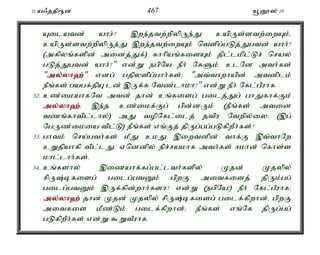 11 யஃததிரூன 467 யூனுஸ் 10
யுடையவன் யார்? இறந்தவற்றிலிருந்து உயிருள்ளவற்றையும்,
உயிருள்ளவற்றிலிருந்து இறந்தவற்றையும் வெளிப்படுத்துபவன் யார்?
(அகிலங்களின் அனைத்துக்) காரியங்களையும் திட்டமிட்டுச் செயல்
படுத்துபவன் யார்?" என்று நபியே நீர் கேளும். உடனே அவர்கள்
"அல்லாஹ்" எனப் பதிலளிப்பார்கள்; "அவ்வாறாயின் அவனிடம்
நீங்கள் பயபக்தியுடன் இருக்க வேண்டாமா?" என்று நீர் கேட்பீராக.
32. உண்மையாகவே அவன் தான் உங்களைப் படைத்துப் பாதுகாக்கும்
அல்லாஹ்; இந்த உண்மைக்குப் பின்னரும் (நீங்கள் அவனை
வணங்காவிட்டால்) அது வழிகேட்டைத் தவிர வேறில்லை; (இப்
பேருண்மையை விட்டு) நீங்கள் எங்குத் திருப்பப்படுகிறீர்கள்?
33. பாவம் செய்பவர்கள் மீது உமது இறைவனின் வாக்கு இவ்வாறே
உறுதியாகி விட்டது. ஏனெனில் நிச்சயமாக அவர்கள் ஈமான் கொள்ள
மாட்டார்கள்.
34. உங்களால் இணையாக்கப்பட்டவர்களில் முதன் முதலில்
சிருஷ்டிகளைப் படைப்பவனும் பிறகு அவைகளைத் திரும்பப்
படைப்பவனும் இருக்கின்றார்களா? என்று (நபியே) நீர் கேட்பீராக;
அல்லாஹ் தான் முதன் முதலில் சிருஷ்டிகளைப் படைக்கிறான்; பிறகு
அவைகளை மீண்டும் படைக்கிறான்; நீங்கள் எங்கே திருப்பப்
படுகிறீர்கள் என்று கூறுவீராக.